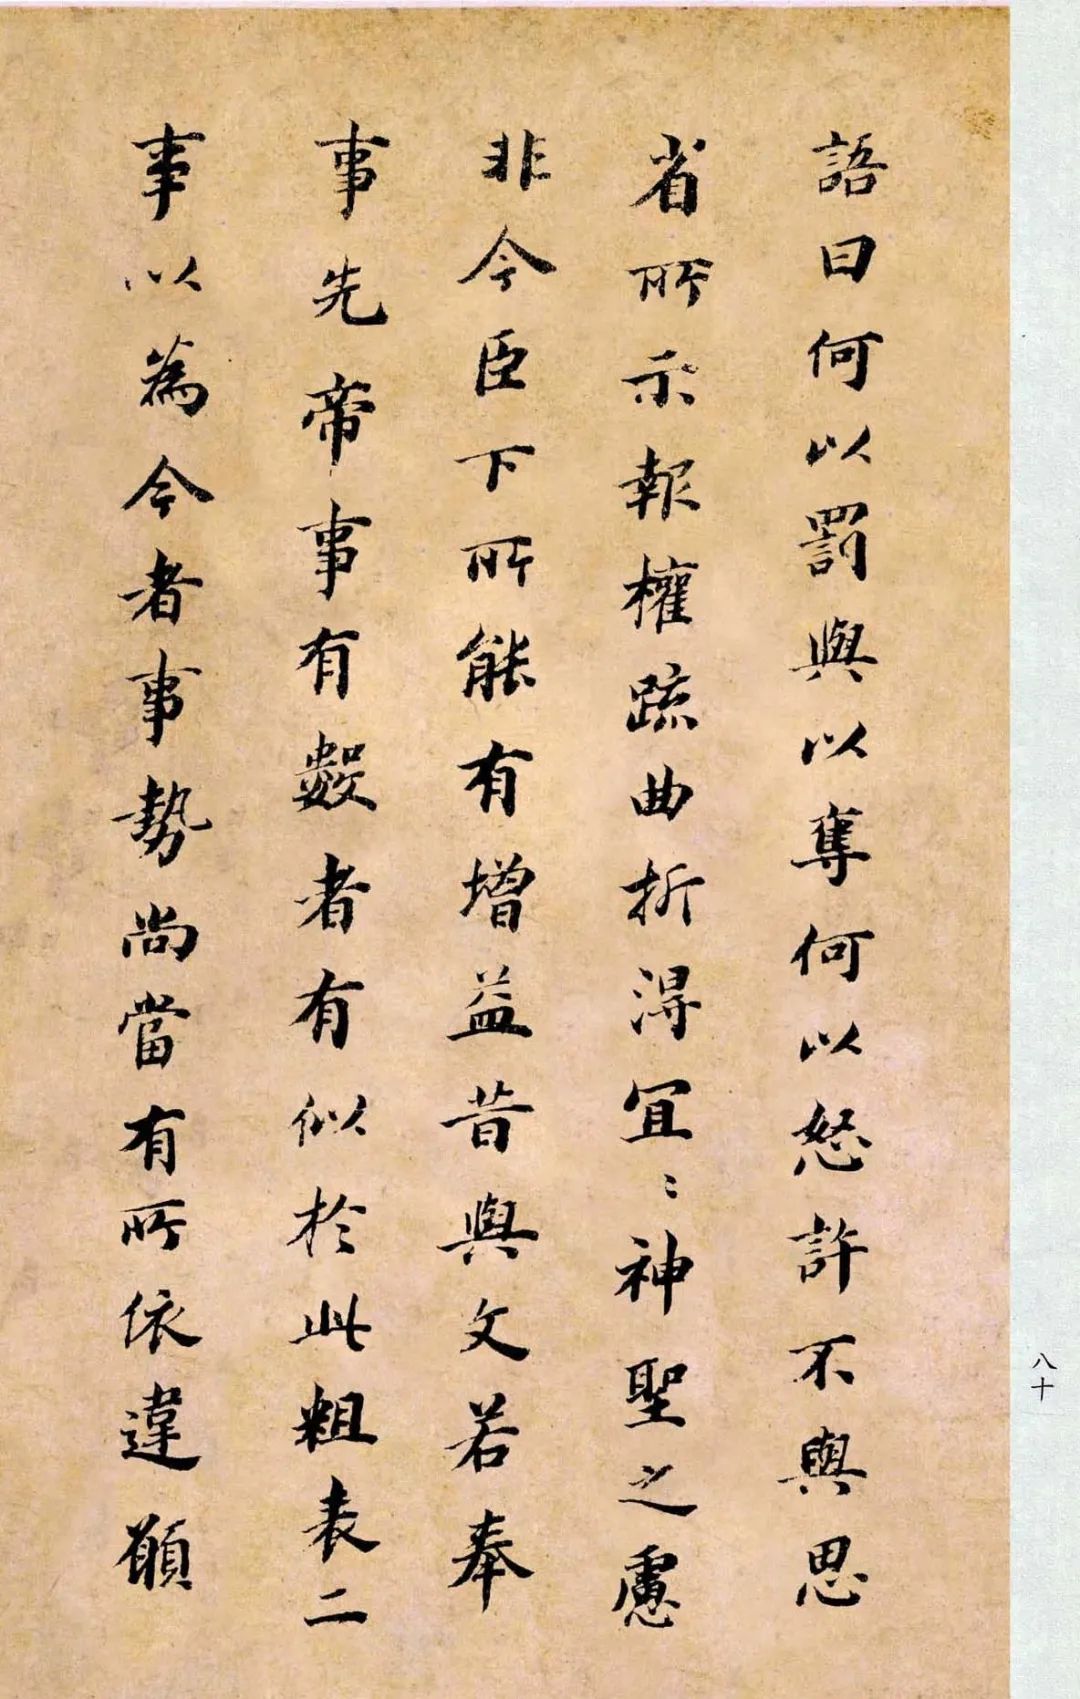 語曰何以罰與以奪何以怒許不與思
省所示報權疏曲折得宜〻神聖之慮
非今臣下所能有增益昔與文若奉
事先帝事有數者有似於此粗表二
事以為今者事勢尚當有所依違願
八十